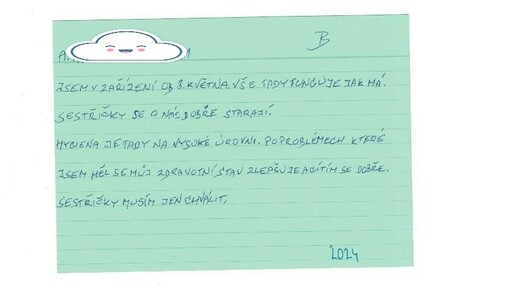 B
JSEM V ZAŘÍZENÍ OD 8. KVĚTNA. VŠE TADY FUNGUJE JAK MÁ.
SESTŘIČKY SE O NÁS DOBŘE STARAJÍ.
HYGIENA JE TADY NA VYSOKÉ ÚROVNI. PO PROBLÉMECH KTERÉ
JSEM MĚL SE MŮJ ZDRAVOTNÍ STAV ZLEPŠUJE A CÍTÍM SE DOBŘE.
SESTŘIČKY MUSÍM JEN CHVÁLIT.
2024